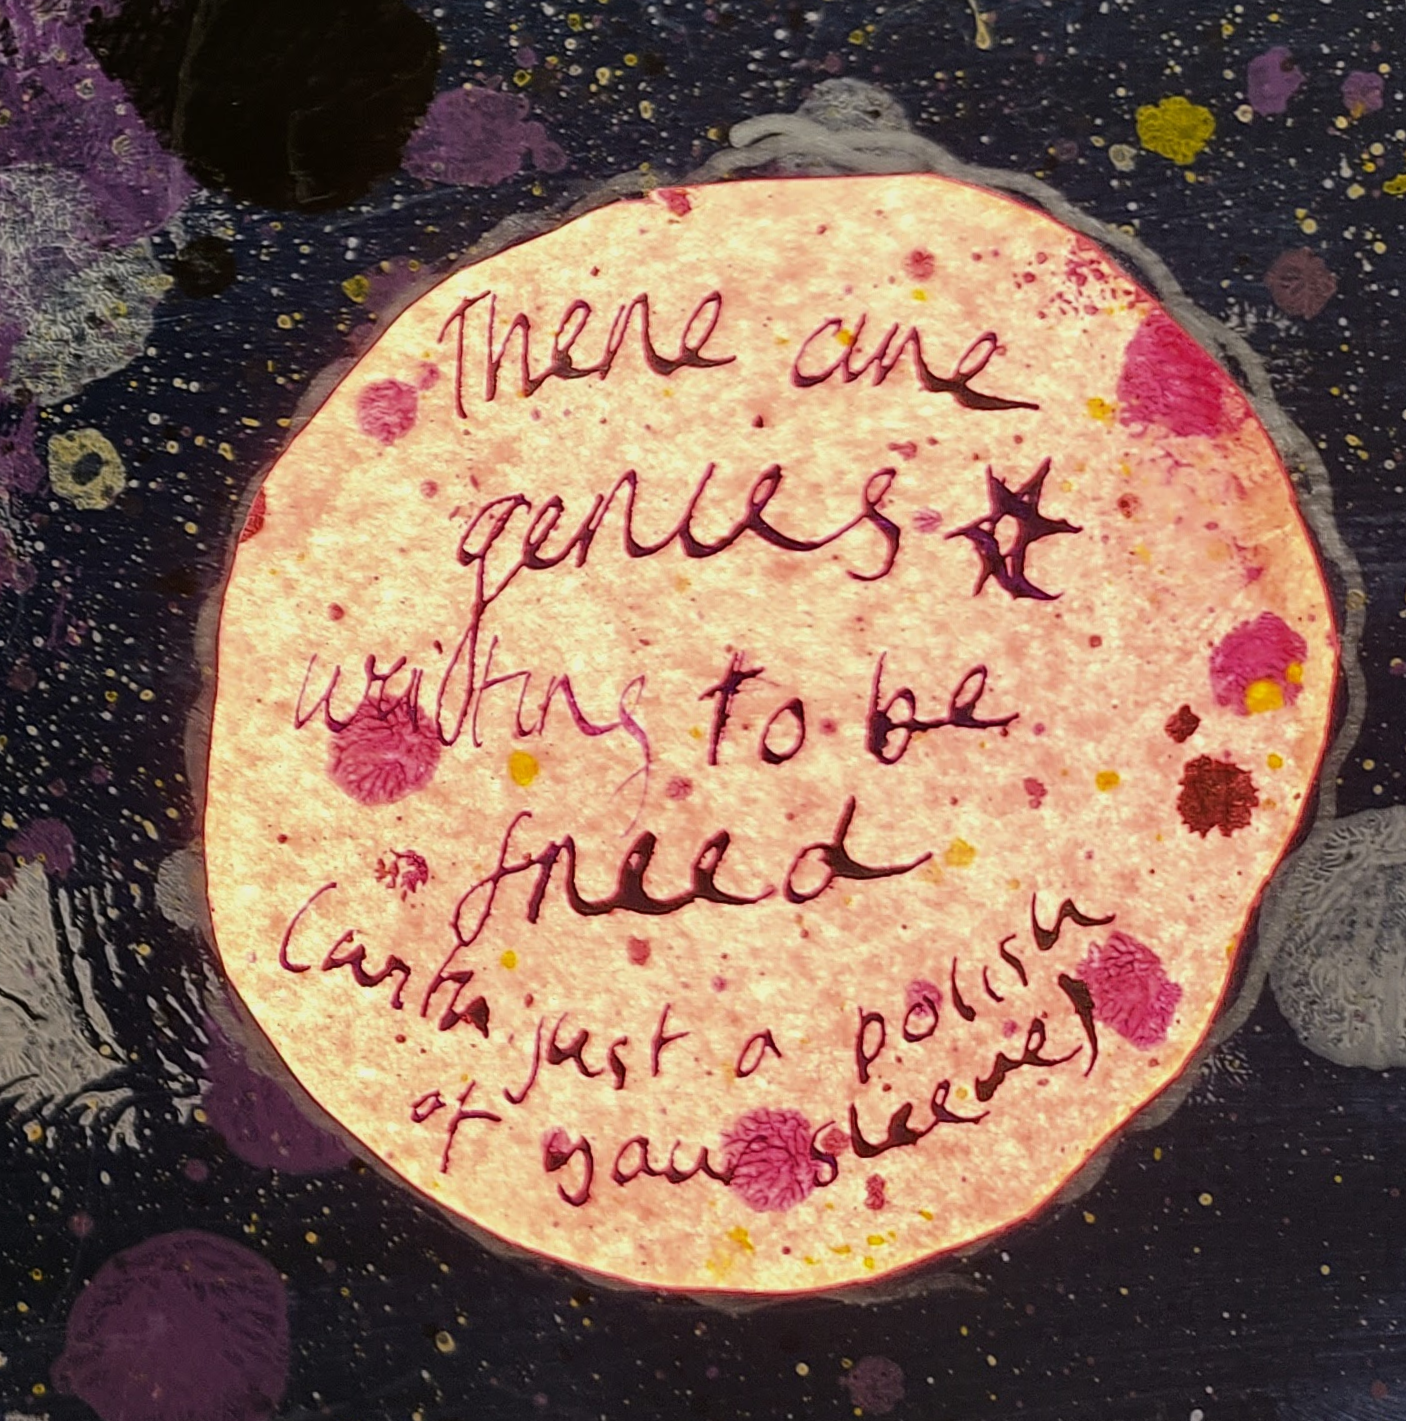 There are
genies
waiting to be
freed
(with just a polish
of your sleeve)